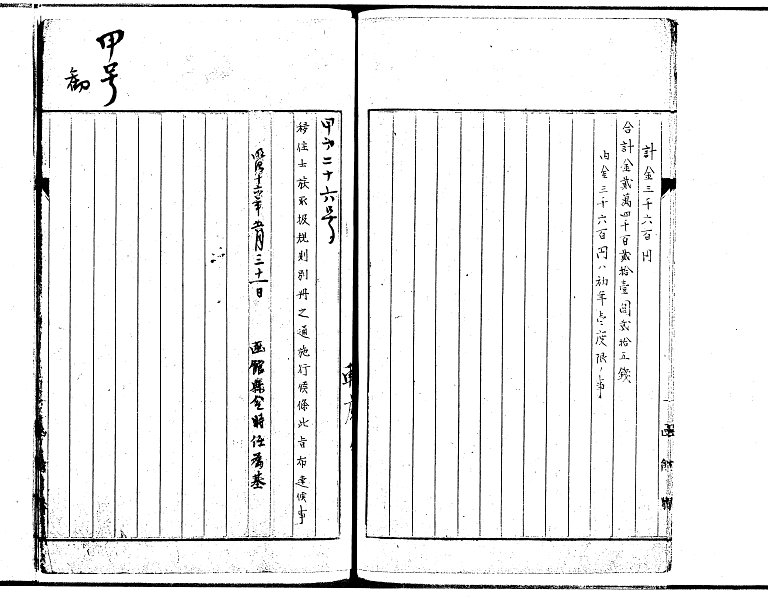 計金三千六百円
合計金貳萬四千百貳拾壹圓貳拾五錢
内金三千六百円ハ初年壱度限ノ事
函館縣
甲第二十六号
移住士族取扱規則別冊之通施行候條此旨布達候事
明治十六年五月三十一日 函館縣令時任為基
甲号